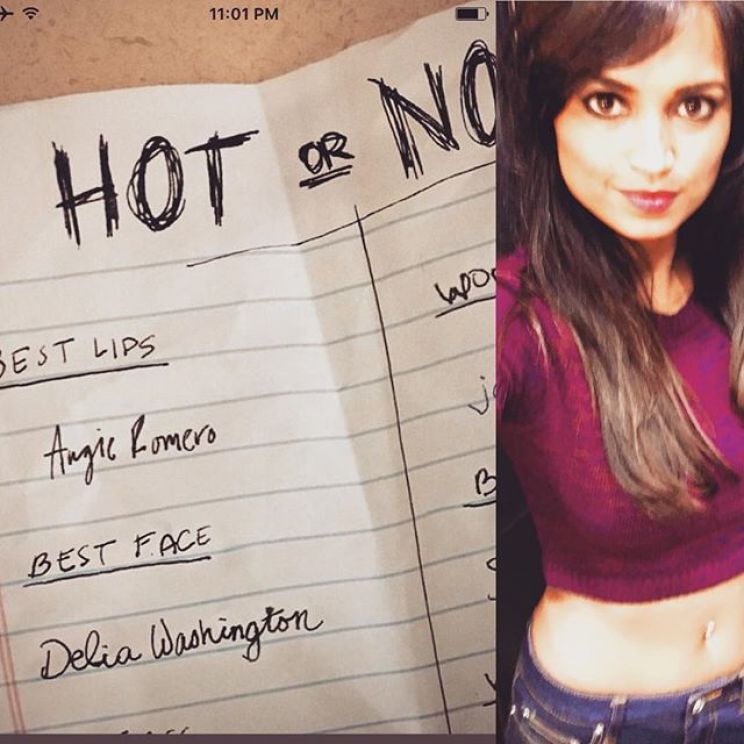 11:01 PM
HOT OR NO
BEST LIPS
Angie Romero
BEST FACE
Delia Washington